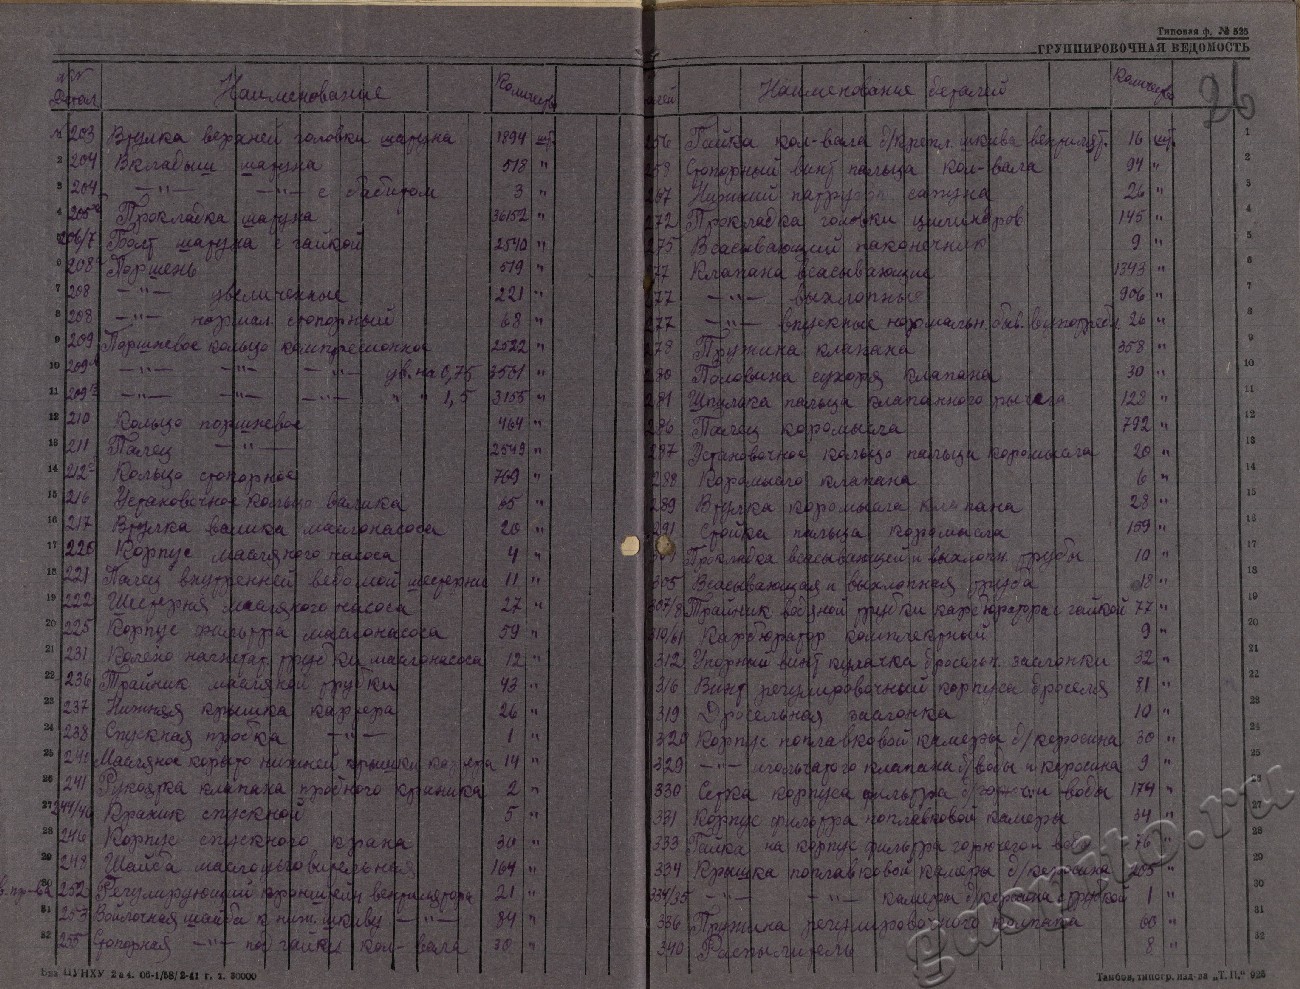 Типовая ф. № 525
ГРУППИРОВОЧНАЯ ВЕДОМОСТЬ
26
№№ Детал. Наименование Количеств.
1 203 Втулка верхней головки шатуна 1894 шт.
2 204 Вкладыш шатуна 518 "
3 204 —"— —"— с баббитом 3 "
4 205 Прокладка шатуна 36152 "
5 206/7 Болт шатуна с гайкой 2540 "
6 208 Поршень 519 "
7 208 —"— увеличенные 221 "
8 208 —"— нормал. стопорный 68 "
9 209 Поршневое кольцо компресионное 2522 "
10 209 —"— —"— —"— ув. на 0,75 3531 "
11 209 —"— —"— —"— " " 1,5 3155 "
12 210 Кольцо поршневое 464 "
13 211 Палец —"— 2549 "
14 212 Кольцо стопорное 769 "
15 216 Установочное кольцо валика 65 "
16 217 Втулка валика маслонасоса 20 "
17 220 Корпус масляного насоса 4 "
18 221 Палец внутренней ведомой шестерни 11 "
19 222 Шестерня масляного насоса 27 "
20 225 Корпус фильтра маслонасоса 59 "
21 231 Колено нагнетат. трубки маслонасоса 12 "
22 236 Трайник масляной трубки 43 "
23 237 Нижняя крышка картера 26 "
24 238 Спускная пробка —"— 1 "
25 241 Масляное корыто нижней крышки картера 14 "
26 241 Рукоятка клапана пробного краника 2 "
27 244/46 Краник спускной 5 "
28 246 Корпус спускного крана 30 "
29 248 Шайба маслоуловительная 164 "
30 252 Регулирующий кронштейн вентилятора 21 "
31 253 Войлочная шайба к ниж. шкиву —"— 84 "
32 255 Стопорная —"— под гайки кол-вала 30 "
Изд. ЦУНХУ 2 в 4. 06-1/58/2-41 г. т. 50000
Наименование деталей Количеств.
256 Гайка кол-вала д/крепл. шкива вентилят. 16 шт. 1
259 Стопорный винт пальца кол-вала 94 " 2
267 Нижний патрубок сапуна 26 " 3
272 Прокладка головки цилиндров 145 " 4
275 Всасывающий наконечник 9 " 5
277 Клапана всасывающие 1343 " 6
277 —"— выхлопные 906 " 7
277 —"— впускные нормальн. 26 " 8
278 Пружина клапана 358 " 9
280 Половина сухоря клапана 30 " 10
281 Шпилька пальца клапанного рычага 128 " 11
286 Палец коромысла 792 " 12
287 Установочное кольцо пальца коромысла 20 " 13
288 Коромысло клапана 6 " 14
289 Втулка коромысла клапана 28 " 15
291 Стойка пальца коромысла 159 " 16
Прокладка всасывающей и выхлопн. трубы 10 " 17
305 Всасывающая и выхлопная труба 18 " 18
307/8 Трайник водяной трубки карбюратора с гайкой 77 " 19
310/61 Карбюратор комплектный 9 " 20
312 Упорный винт кулачка дросельн. заслонки 32 " 21
316 Винт регулировочный корпуса дроселя 81 " 22
319 Дросельная заслонка 10 " 23
320 Корпус поплавковой камеры д/керосина 30 " 24
329 —"— игольчатого клапана д/воды и керосина 9 " 25
330 Сетка корпуса фильтра д/горючей воды 174 " 26
331 Корпус фильтра поплавковой камеры 34 "
333 Гайка на корпус фильтра горючего воды 76 "
334 Крышка поплавковой камеры д/керосина 205 "
334/35 —"— —"— камеры д/керосина трубкой 1 " 30
336 Пружина регулировочного клапана 60 " 31
340 Распылитель 8 " 32
Тамбов, типогр. изд-ва „Т. П." 925
gasmito.ru